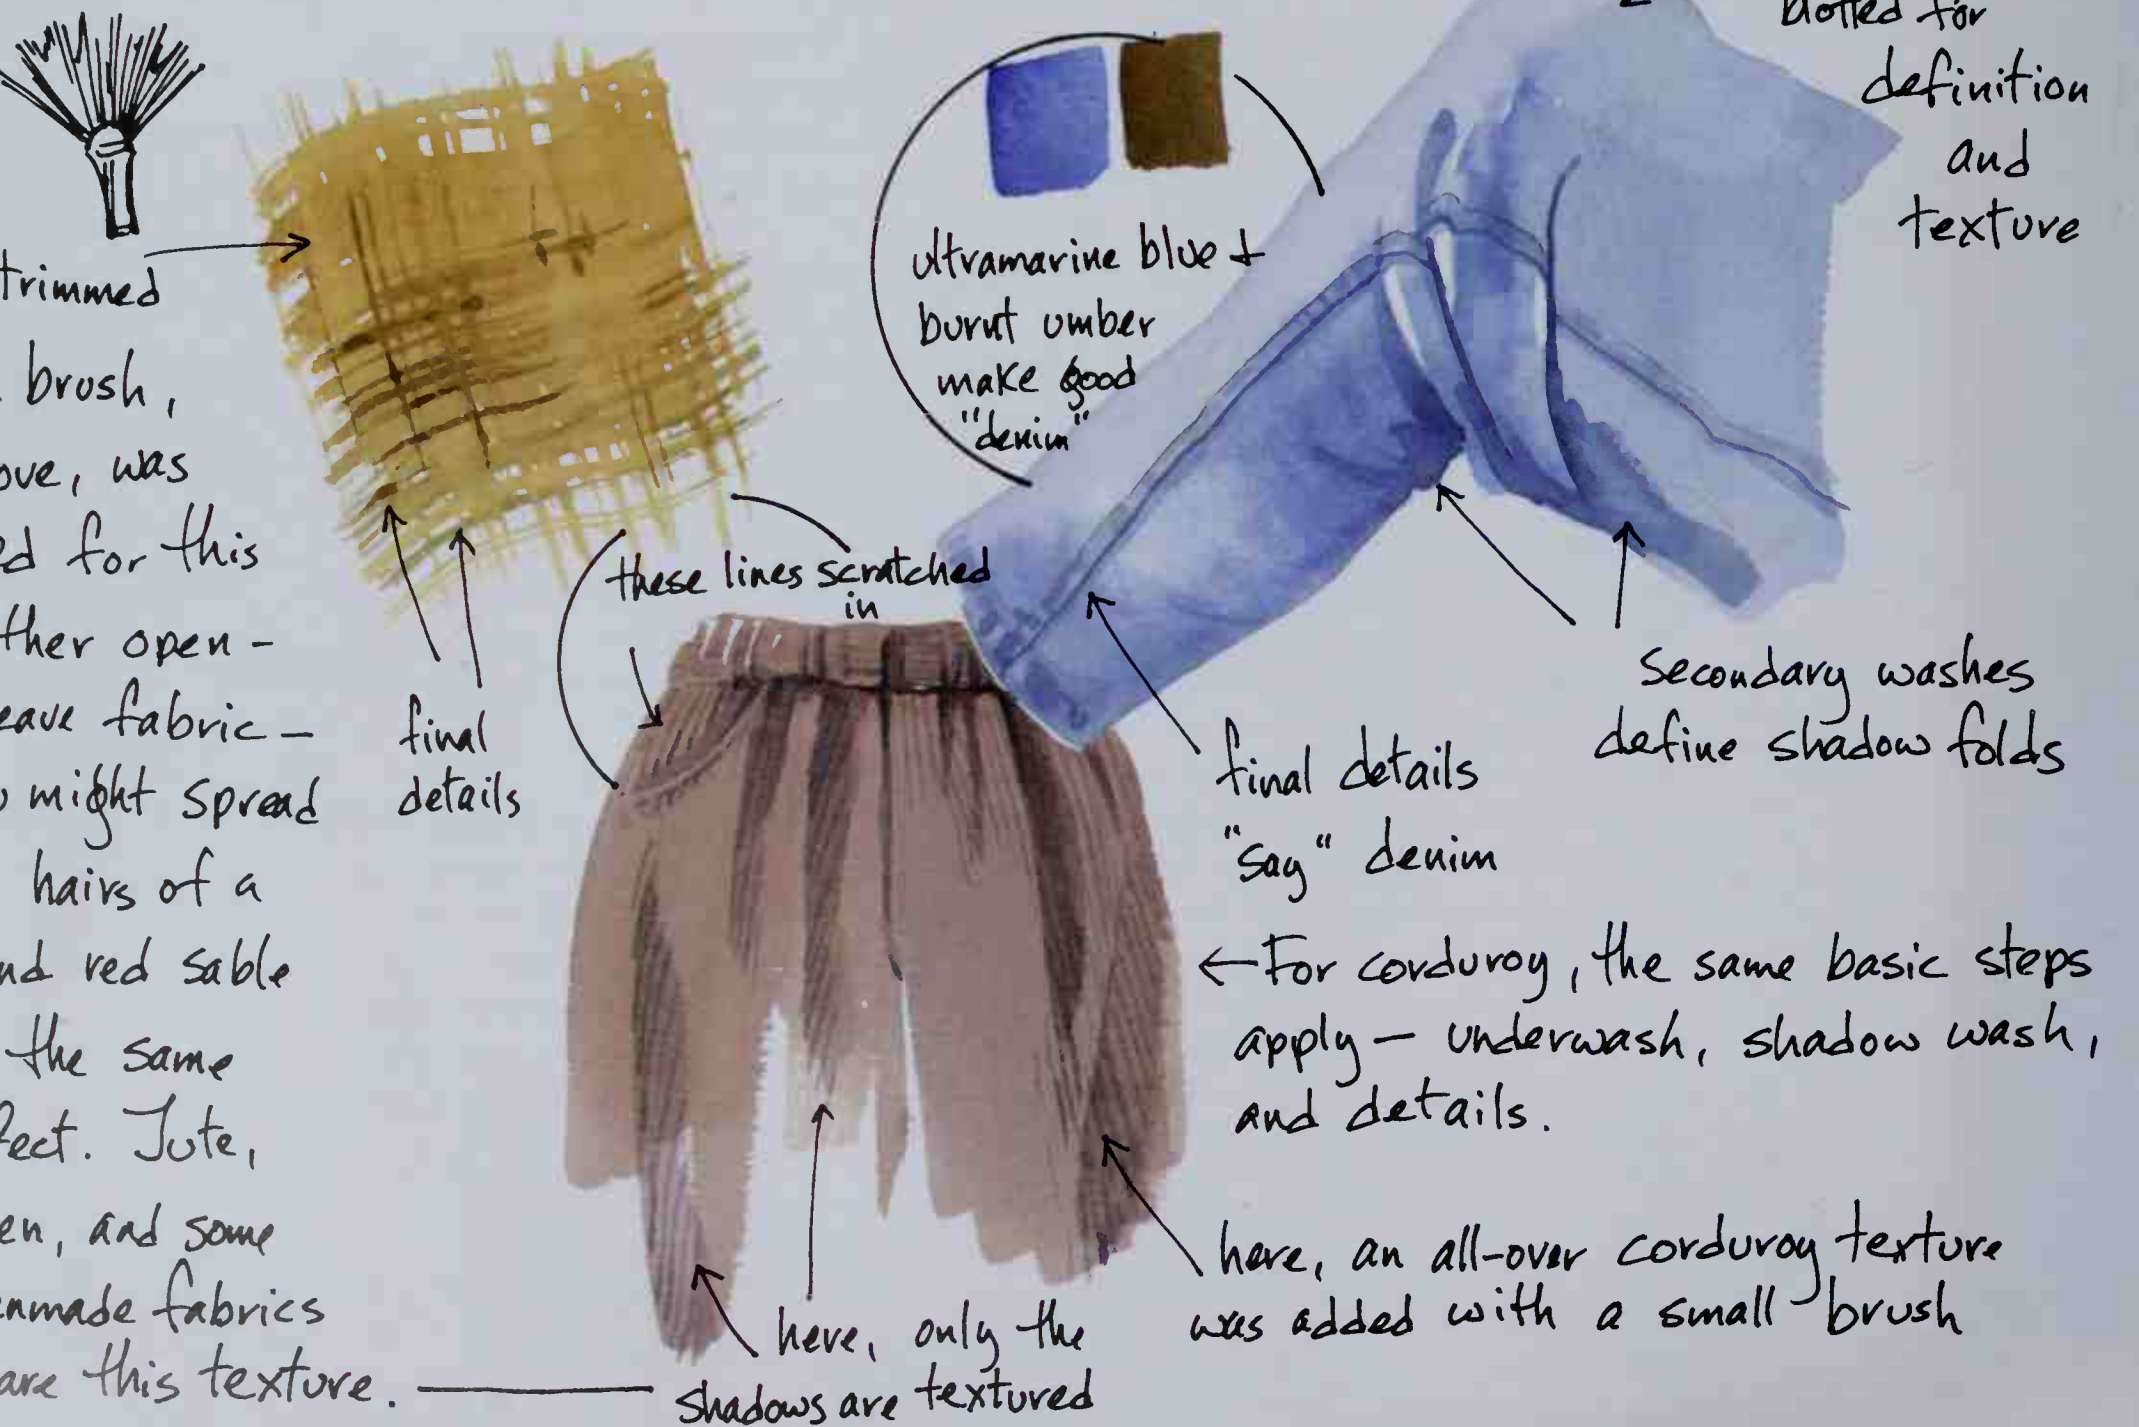 trimmed
brush,
ove, was
ed for this
ther open-
eave fabric—
might spread
hairs of a
nd red sable
the same
fect. Jute,
en, and some
nmade fabrics
are this texture.
final
details
these lines scratched
in
ultramarine blue +
burnt umber
make good
"denim"
blotted for
definition
and
texture
Secondary washes
define shadow folds
final details
"say" denim
←For corduroy, the same basic steps
apply— underwash, shadow wash,
and details.
here, an all-over corduroy texture
was added with a small brush
here, only the
shadows are textured